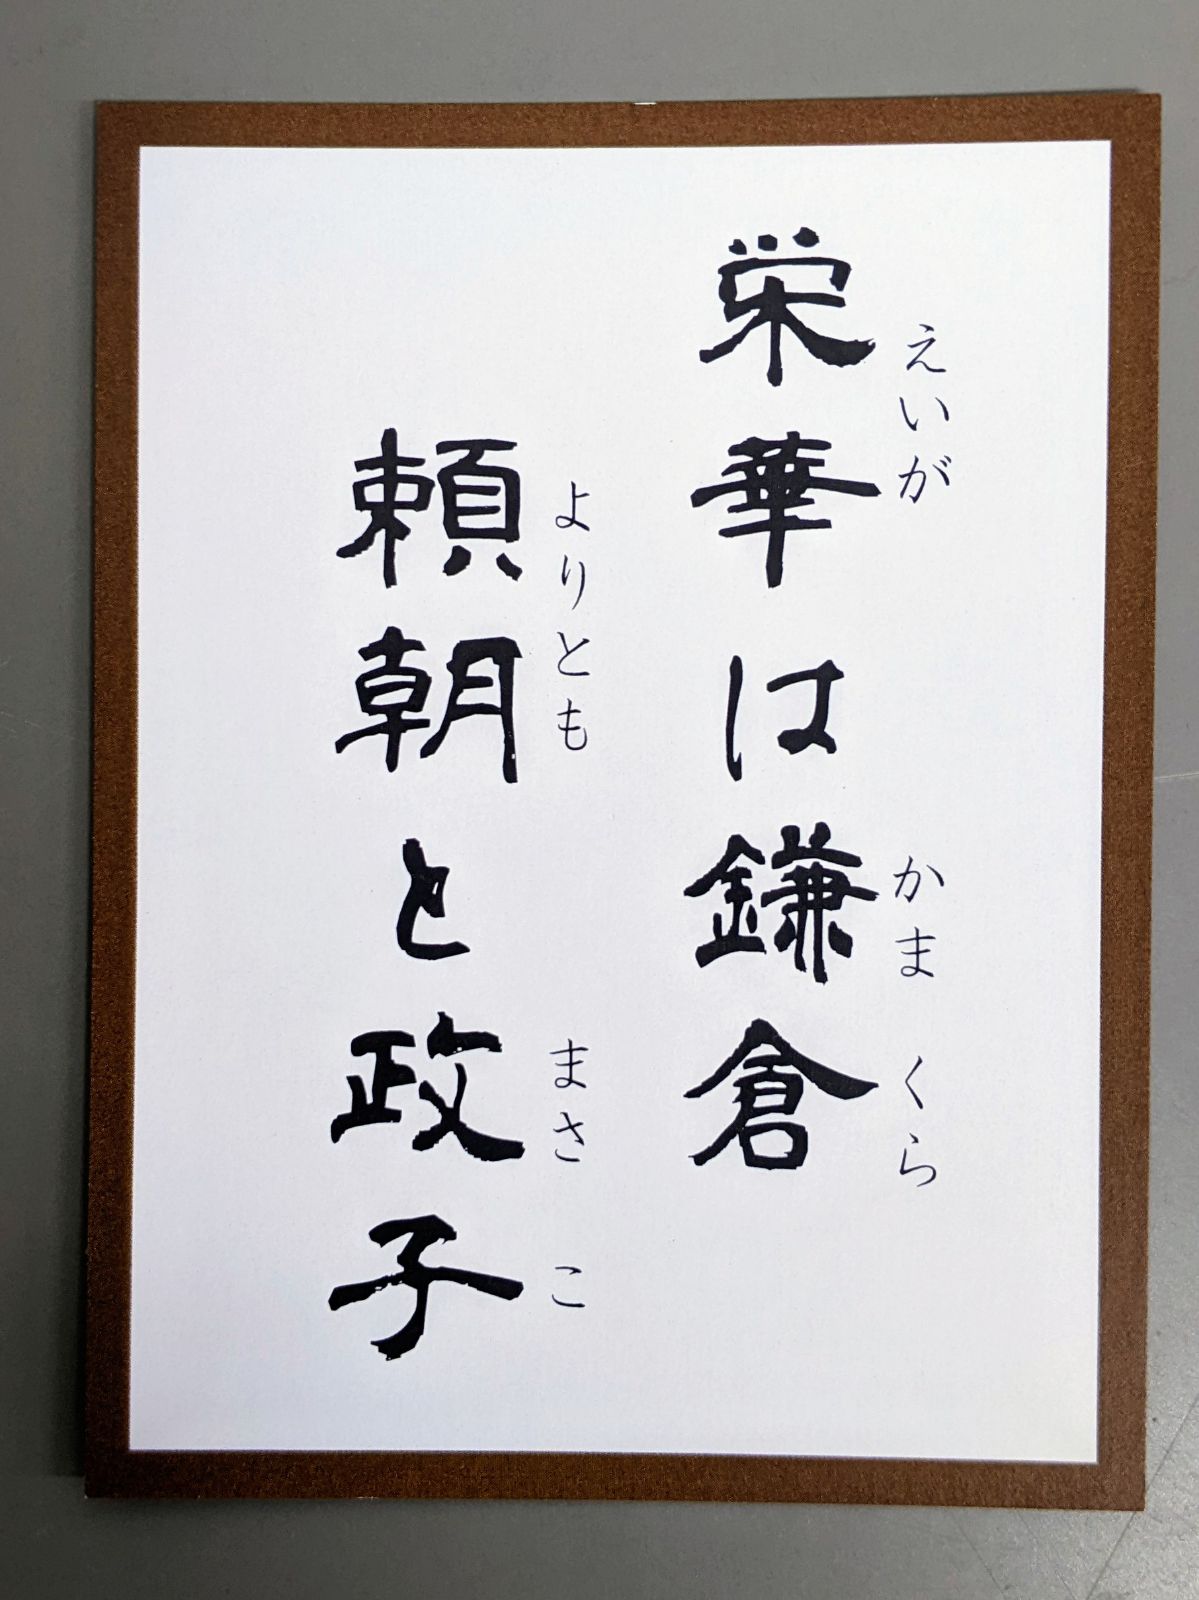 栄華は鎌倉
えいが
かまくら
頼朝と政子
よりとも
まさこ